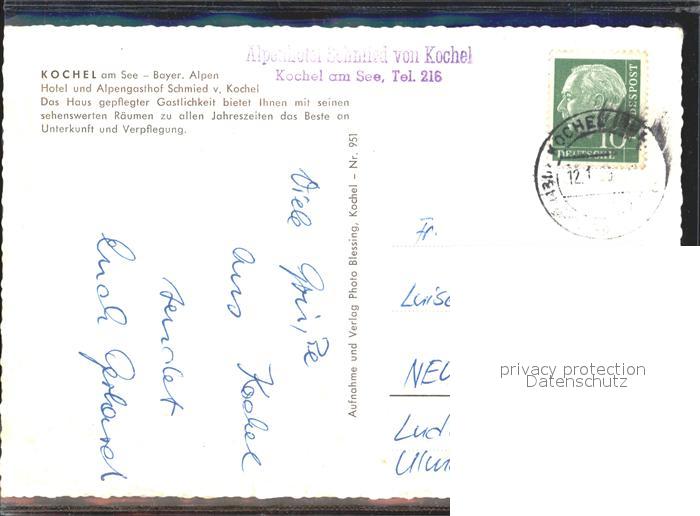 KOCHEL am See – Bayer. Alpen
Hotel und Alpengasthof Schmied v. Kochel
Das Haus gepflegter Gastlichkeit bietet Ihnen mit seinen
sehenswerten Räumen zu allen Jahreszeiten das Beste an
Unterkunft und Verpflegung.
Alpenhotel Schmied von Kochel
Kochel am See, Tel. 216
DEUTSCHE
BUNDESPOST
10
KOCHEL
12.1
Aufnahme und Verlag Photo Blessing, Kochel – Nr. 951
Viele Grüße
aus Kochel
sendet
Euch Gerhard
Fr.
Luise
NEU
Ulm
privacy protection
Datenschutz